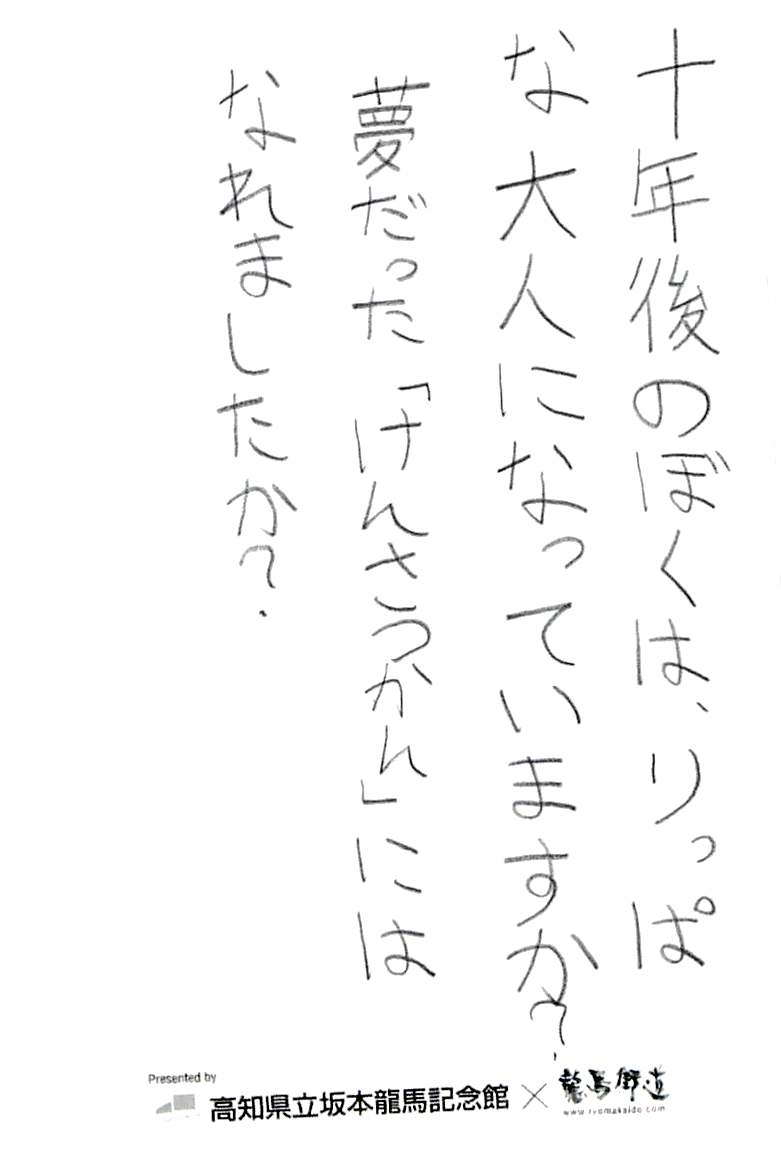 十年後のぼくは、りっぱ
な大人になっていますか?
夢だった「けんさつかん」には
なれましたか?
Presented by
高知県立坂本龍馬記念館×龍馬街道
www.ryomakaido.com